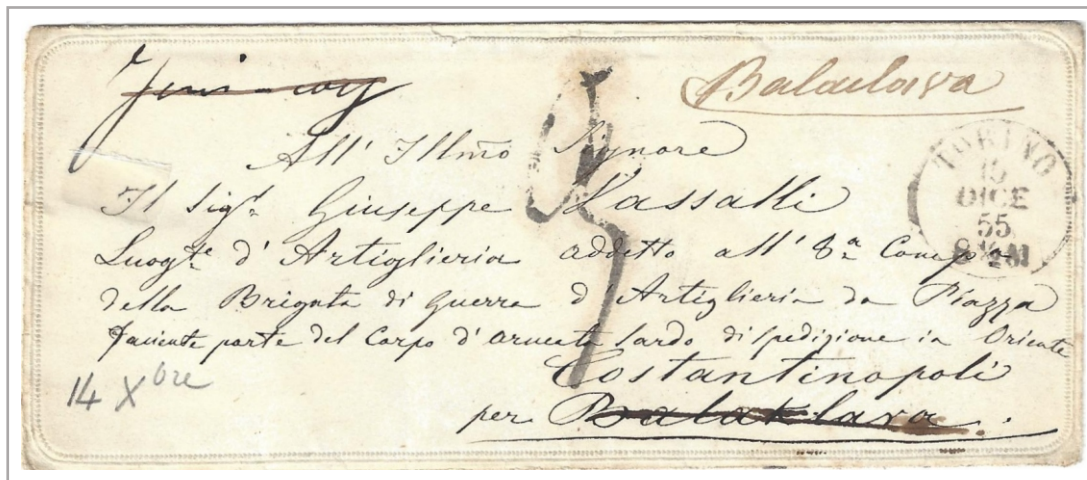 Balaclava
All' Illmo Signore
Il Sigr. Giuseppe Vassalli
Luogte d'Artiglieria addetto all' 8a Compa
della Brigata di guerra d'Artiglieria da Piazza
faciente parte del Corpo d'armata Sardo di spedizione in Oriente
Costantinopoli
per Balaklava.
14 Xbre
TORINO
DICE
55